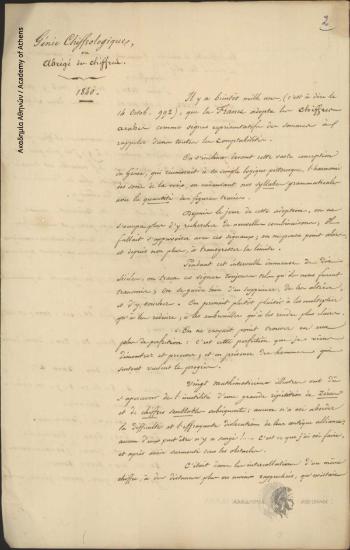 2
Génie Chiffrologique,
ou
Abrégé du chiffrer.
1840.
Ακαδημία Αθηνών / Academy of Athens
Il y a bientôt mille ans, (c'est à dire le
16 Octob. 992), que la France adopta les chiffres
arabes comme signes représentatifs des sommes à
rappeler dans toute la Comptabilité.
On s'inclina devant cette vaste conception
du Génie, qui réunissait à la simple logique pittoresque, l'harmonie
des sons de la voix, en mesurant nos syllabes grammaticales
avec la quantité des figures tracées.
Depuis le jour de cette adoption, on ne
s'occupa plus d'y rechercher de nouvelles combinaisons; Il
fallait s'approprier avec ces signaux; on ne pensa point alors
et depuis non plus, à transgresser la limite.
Pendant cet intervalle immense de dix
siècles, on traça ces signes toujours tels qu'ils nous furent
transmis; on se garda bien d'en supprimer, de les altérer,
et d'y toucher. On prenait plutôt plaisir à les multiplier
qu'à les réduire, à les embrouiller qu'à les rendre plus clairs.
On ne croyait point trouver en eux
plus de perfection: c'est cette perfection que je viens
démontrer et prouver; et en présence des hommes qui
sentent valoir le progrès.
Vingt mathématiciens illustres ont dû
s'apercevoir de l'inutilité d'une grande répétition de Zéros
et de chiffres semblables subséquents; aucun n'a osé aborder
la difficulté et l'effrayante dislocation de leur antique alliance;
aucun d'eux peut être n'y a songé!... C'est ce que j'ai osé faire,
et après avoir surmonté tous les obstacles.
C'était dans les intercallations d'un même
chiffre, à des distances plus ou moins rapprochées, qu'existait
ΑΚΑΔΗΜΙΑ ΑΘΗΝΩΝ